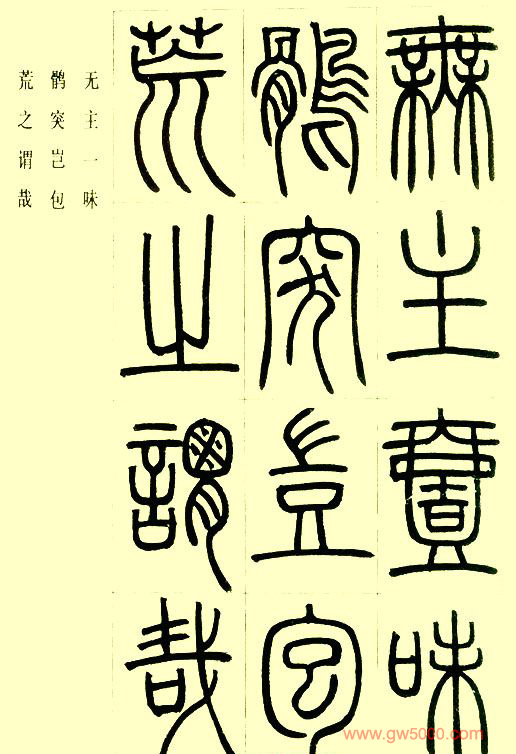 無主壹味
鶻突豈包
荒之謂哉
无主一味
鹘突岂包
荒之谓哉
www.gw5000.com